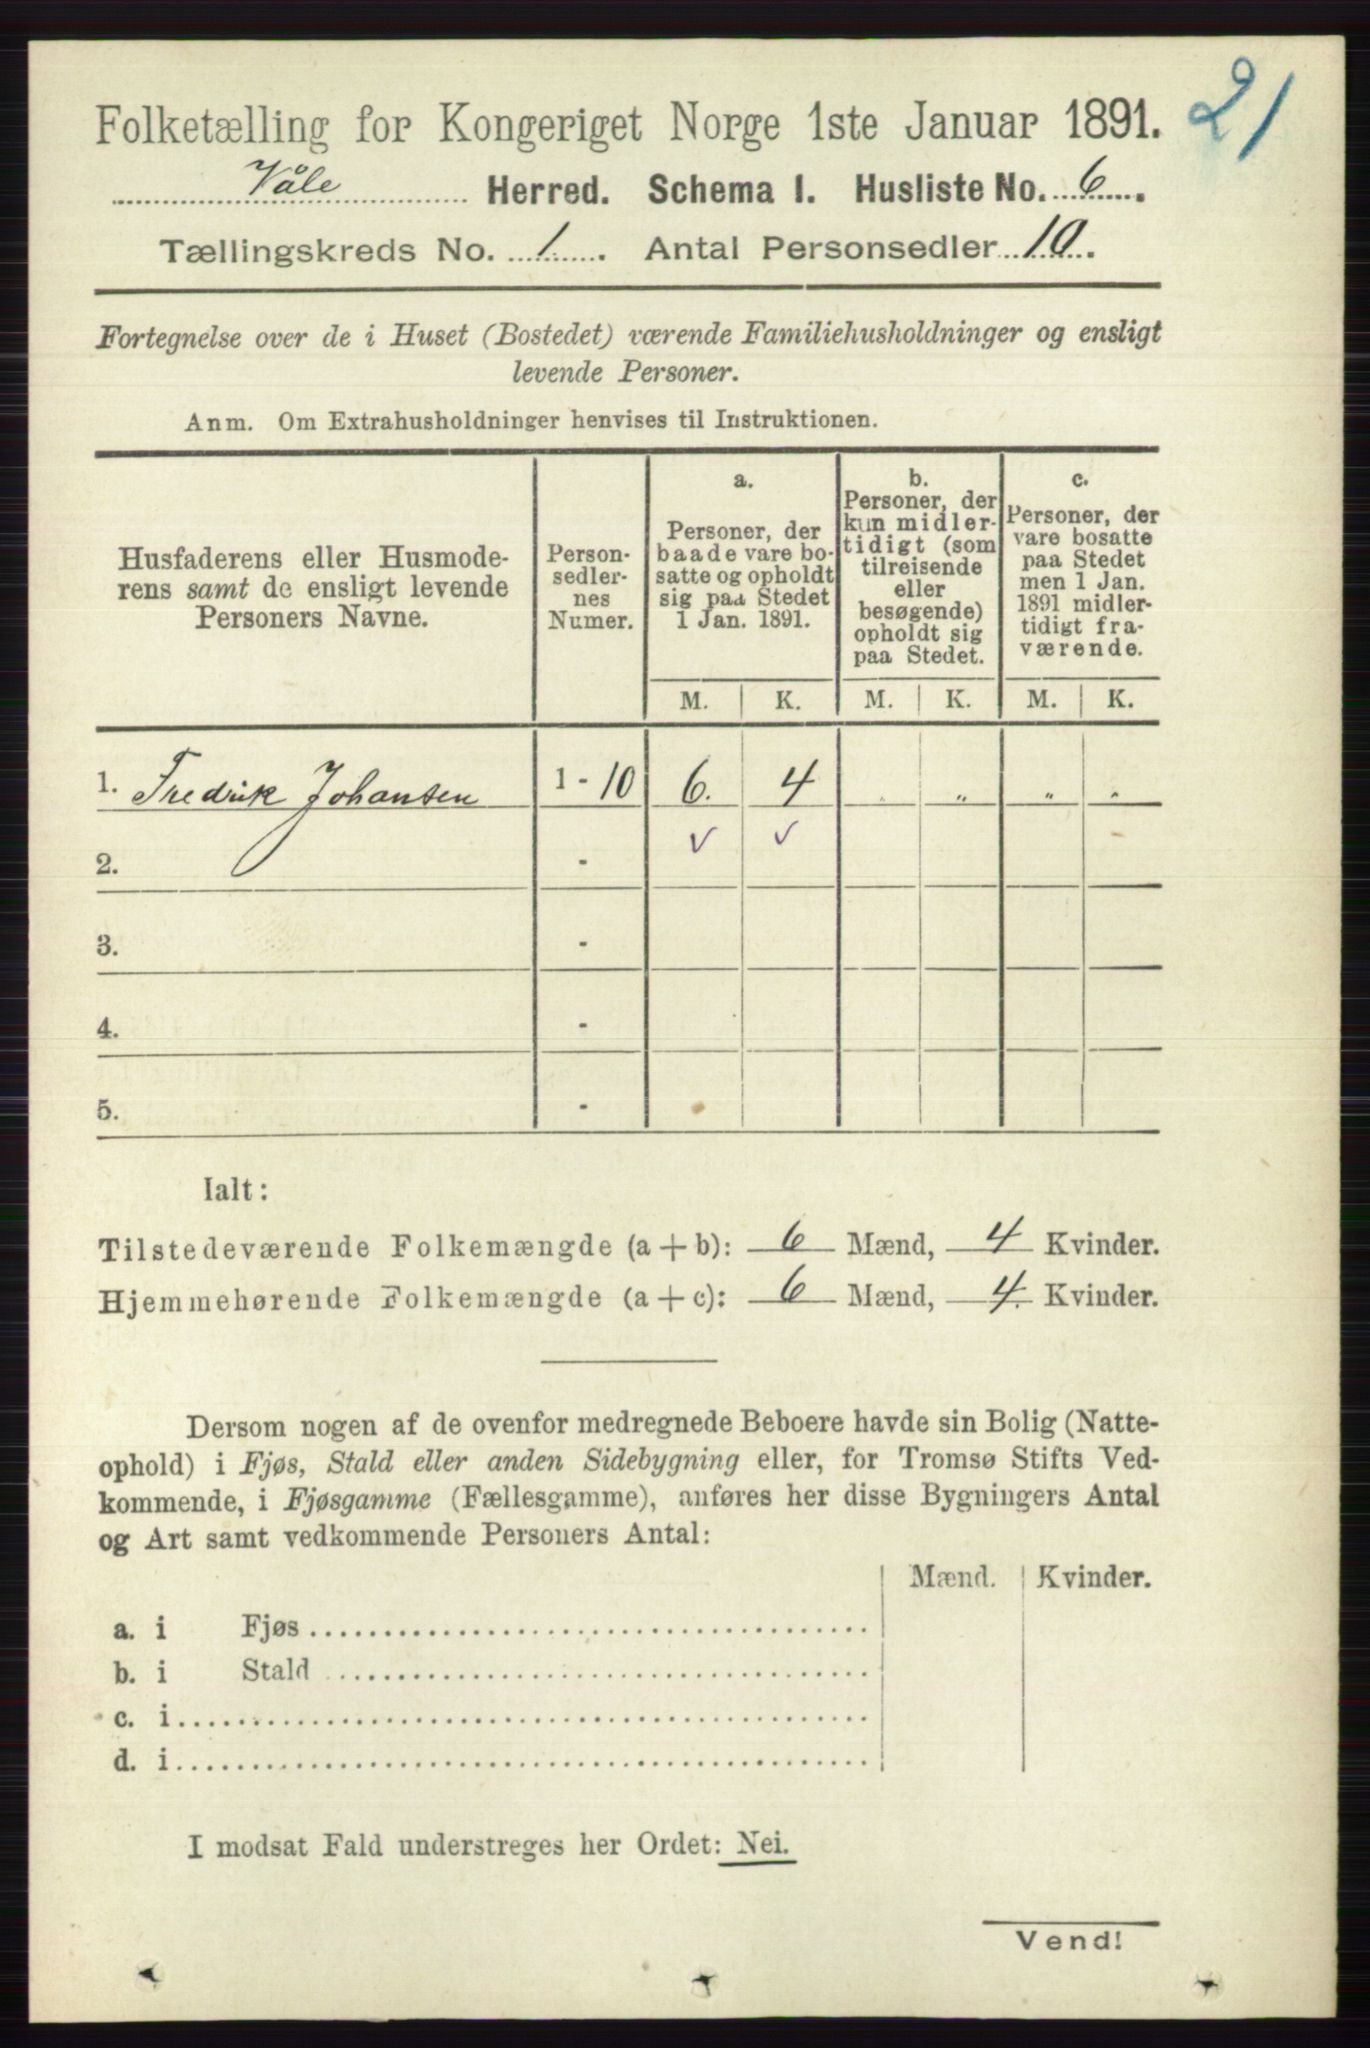 21
Folketælling for Kongeriget Norge 1ste Januar 1891.
Våle Herred. Schema 1. Husliste No. 6.
Tællingskreds No. 1. Antal Personsedler 10.
Fortegnelse over de i Huset (Bostedet) værende Familiehusholdninger og ensligt
levende Personer.
Anm. Om Extrahusholdninger henvises til Instruktionen.
Husfaderens eller Husmode-
rens samt de ensligt levende
Personers Navne.
Person-
sedler-
nes
Numer.
a.
Personer, der
baade vare bo-
satte og opholdt
sig paa Stedet
1 Jan. 1891.
b.
Personer, der
kun midler-
tidigt (som
tilreisende
eller
besøgende)
opholdt sig
paa Stedet.
c.
Personer, der
vare bosatte
paa Stedet
men 1 Jan.
1891 midler-
tidigt fra-
værende.
M. K. M. K. M. K.
1. Fredrik Johansen 1 - 10 6. 4 " " " "
2. - ✓ ✓
3. -
4. -
5. -
Ialt:
Tilstedeværende Folkemængde (a + b): 6 Mænd, 4 Kvinder.
Hjemmehørende Folkemængde (a + c): 6 Mænd, 4. Kvinder.
Dersom nogen af de ovenfor medregnede Beboere havde sin Bolig (Natte-
ophold) i Fjøs, Stald eller anden Sidebygning eller, for Tromsø Stifts Ved-
kommende, i Fjøsgamme (Fællesgamme), anføres her disse Bygningers Antal
og Art samt vedkommende Personers Antal:
Mænd. Kvinder.
a. i Fjøs
b. i Stald
c. i
d. i
I modsat Fald understreges her Ordet: Nei.
Vend!